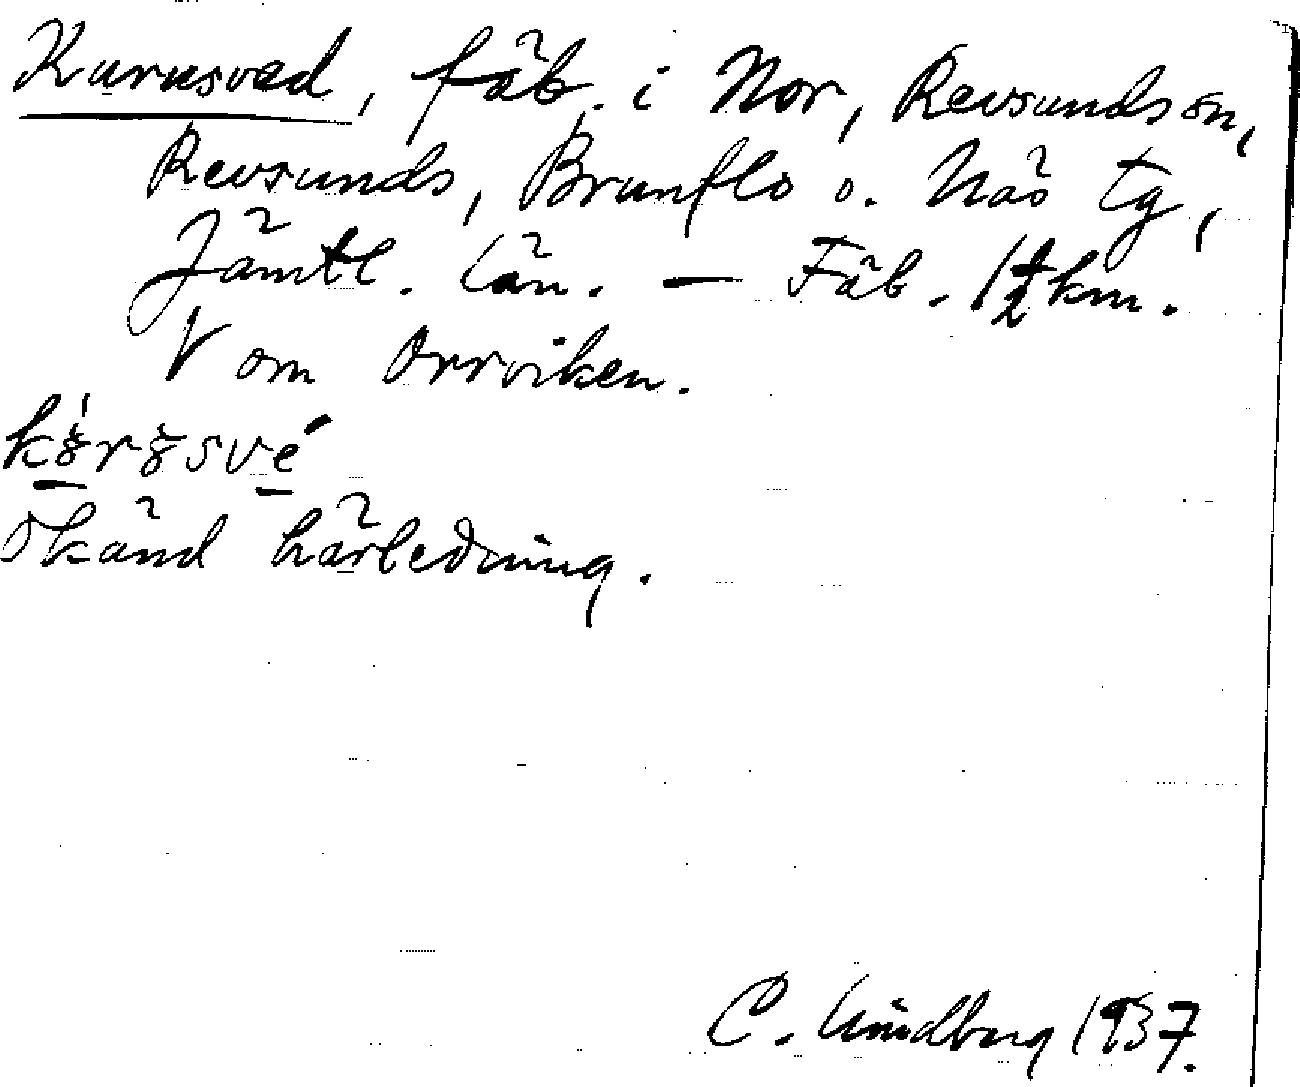 Kurusved, fäb. i Nor, Revsundsön,
Revsunds, Brunflo o. Näs tg,
Jämtl. län. — Fäb. 1½ km.
V om Orrviken.
Okänd härledning.
C. Lindberg 1937.